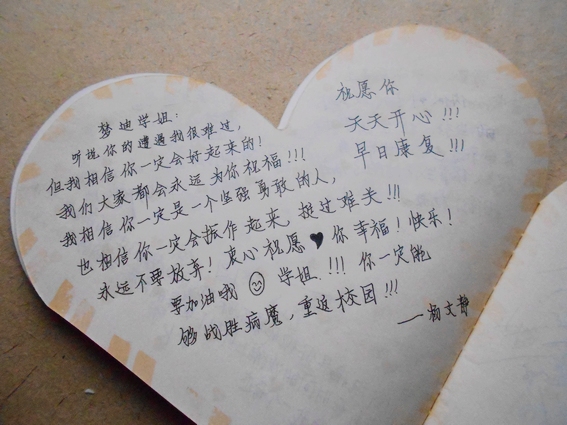 梦迪学姐：
听说你的遭遇我很难过，
但我相信你一定会好起来的！
我们大家都会永远为你祝福！！！
我相信你一定是一个坚强勇敢的人，
也相信你一定会振作起来，挺过难关！！！
永远不要放弃！衷心祝愿你幸福！快乐！
要加油哦 学姐！！！你一定能
够战胜病魔，重返校园！！！
——杨文静
祝愿你
天天开心！！！
早日康复！！！